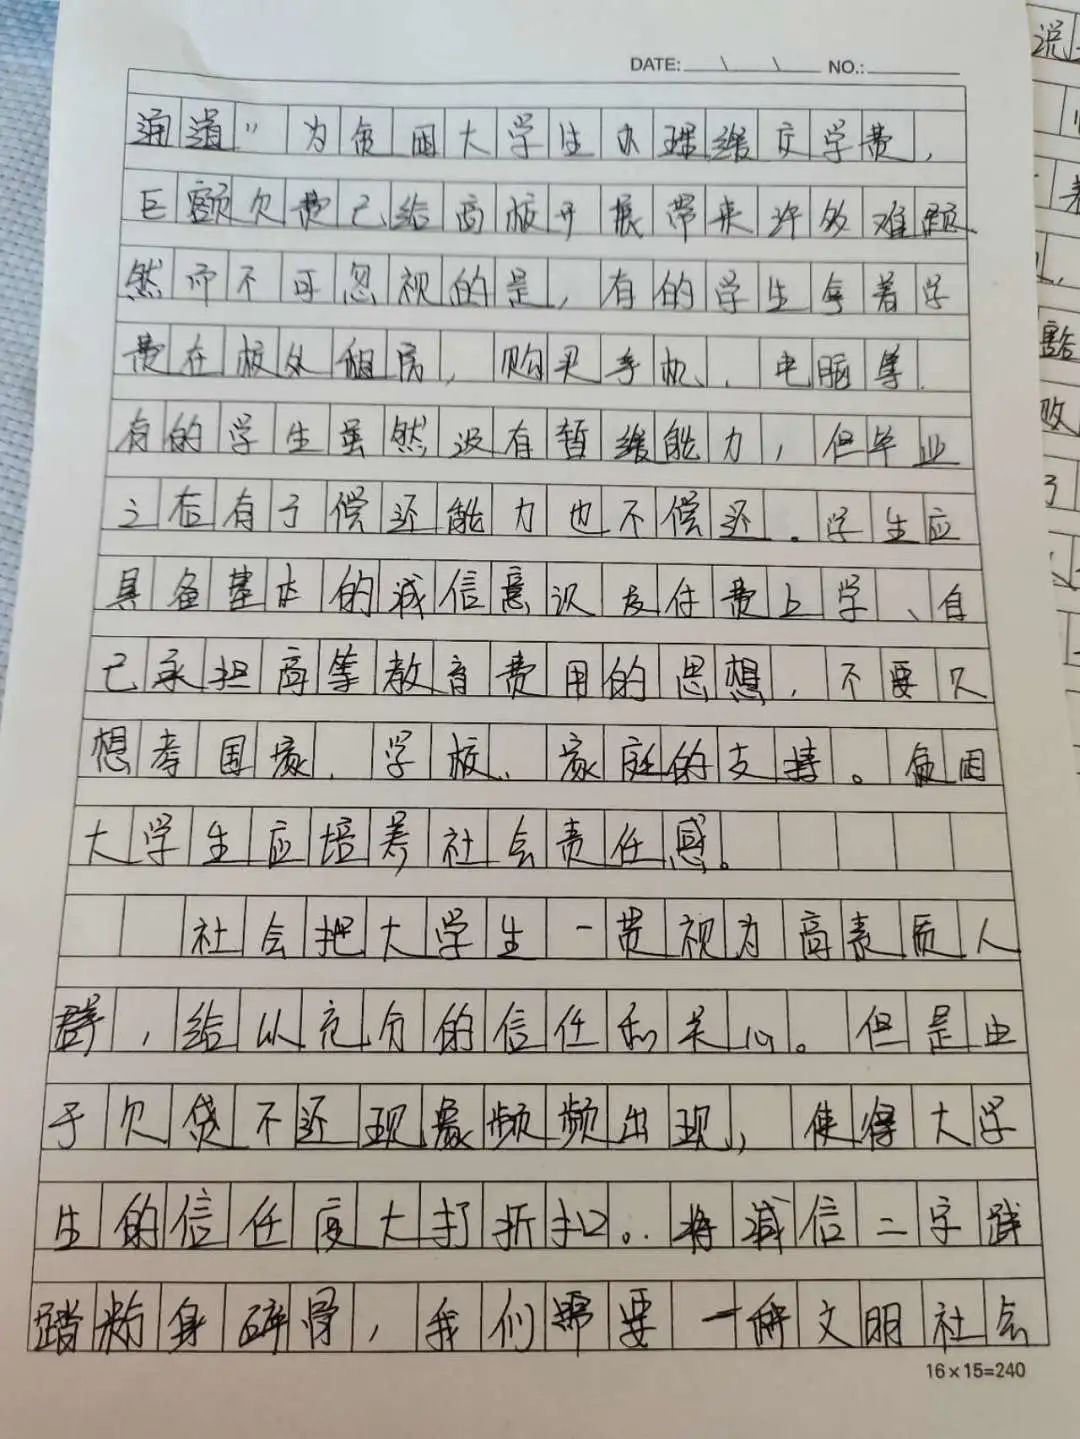 DATE: \ \ NO.:
通道"为贫困大学生办理缓交学费,
巨额欠费已给高校开展带来许多难题
然而不可忽视的是,有的学生拿着学
费在校外租房,购买手机、电脑等.
有的学生虽然没有暂缓能力,但毕业
之后有了偿还能力也不偿还.学生应
具备基本的诚信意识支付费上学、自
己承担高等教育费用的思想,不要只
想考国家、学校、家庭的支持。贫困
大学生应培养社会责任感。
社会把大学生一贯视为高素质人
群,给以充分的信任和关心。但是由
于欠贷不还现象频频出现,使得大学
生的信任度大打折扣。将诚信二字践
踏粉身碎骨,我们需要一种文明社会
16×15=240
说